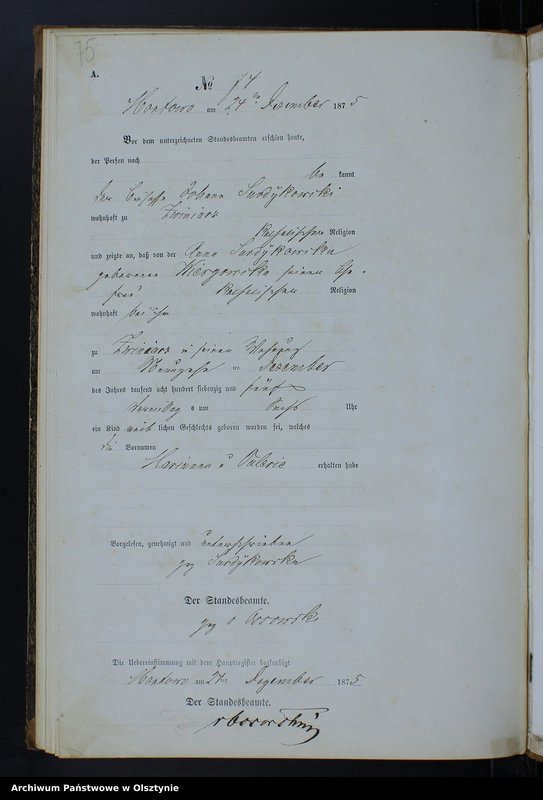 75
A.
No 74
am 24 ten Dezember 1875
Vor dem unterzeichneten Standesbeamten erschien heute,
der Person nach
be kannt
Johann Surdykowski
wohnhaft zu Zwiniarz
katholischen Religion
und zeigte an, daß von der Anna Surdykowska
geborenen seiner Ehe-
frau katholischen Religion
wohnhaft bei ihm
zu Zwiniarz in seiner Wohnung
am im Dezember
des Jahres tausend acht hundert siebenzig und fünf
um sechs Uhr
ein Kind weib lichen Geschlechts geboren worden sei, welches
die Vornamen
Marianna u Valeria erhalten habe
Vorgelesen, genehmigt und unterschrieben
gez Surdykowski
Der Standesbeamte.
gez v Ossowski
Die Uebereinstimmung mit dem Hauptregister beglaubigt
am 24ten Dezember 1875
Der Standesbeamte.
v Ossowski
Archiwum Państwowe w Olsztynie